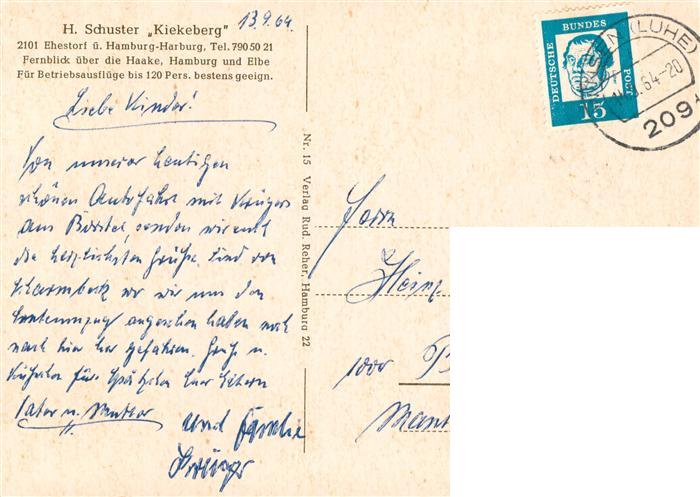 H. Schuster „Kiekeberg"
2101 Ehestorf ü. Hamburg-Harburg, Tel. 790 50 21
Fernblick über die Haake, Hamburg und Elbe
Für Betriebsausflüge bis 120 Pers. bestens geeign.
13.9.64.
Liebe Kinder!
Von unserer heutigen
schönen Autofahrt mit Krügers
aus Borstel, senden wir euch
die herzlichsten Grüße. Sind von
wo wir uns den
angesehen haben noch
nach hier her gefahren. Gruß u.
Eltern
Vater u. Mutter
und Familie
Krüger
Nr. 15 Verlag Rud. Reher, Hamburg 22
DEUTSCHE BUNDES POST
15
(LUHE)
64-20
209
Herrn
Heinz
1000 B